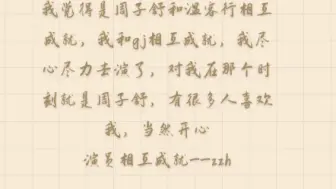 我觉得是周子舒和温客行相互
成就，我和gj相互成就，我尽
心尽力去演了，对我石那个时
刻就是周子舒，有很多人喜欢
我，当然开心
演员相互成就--zzh